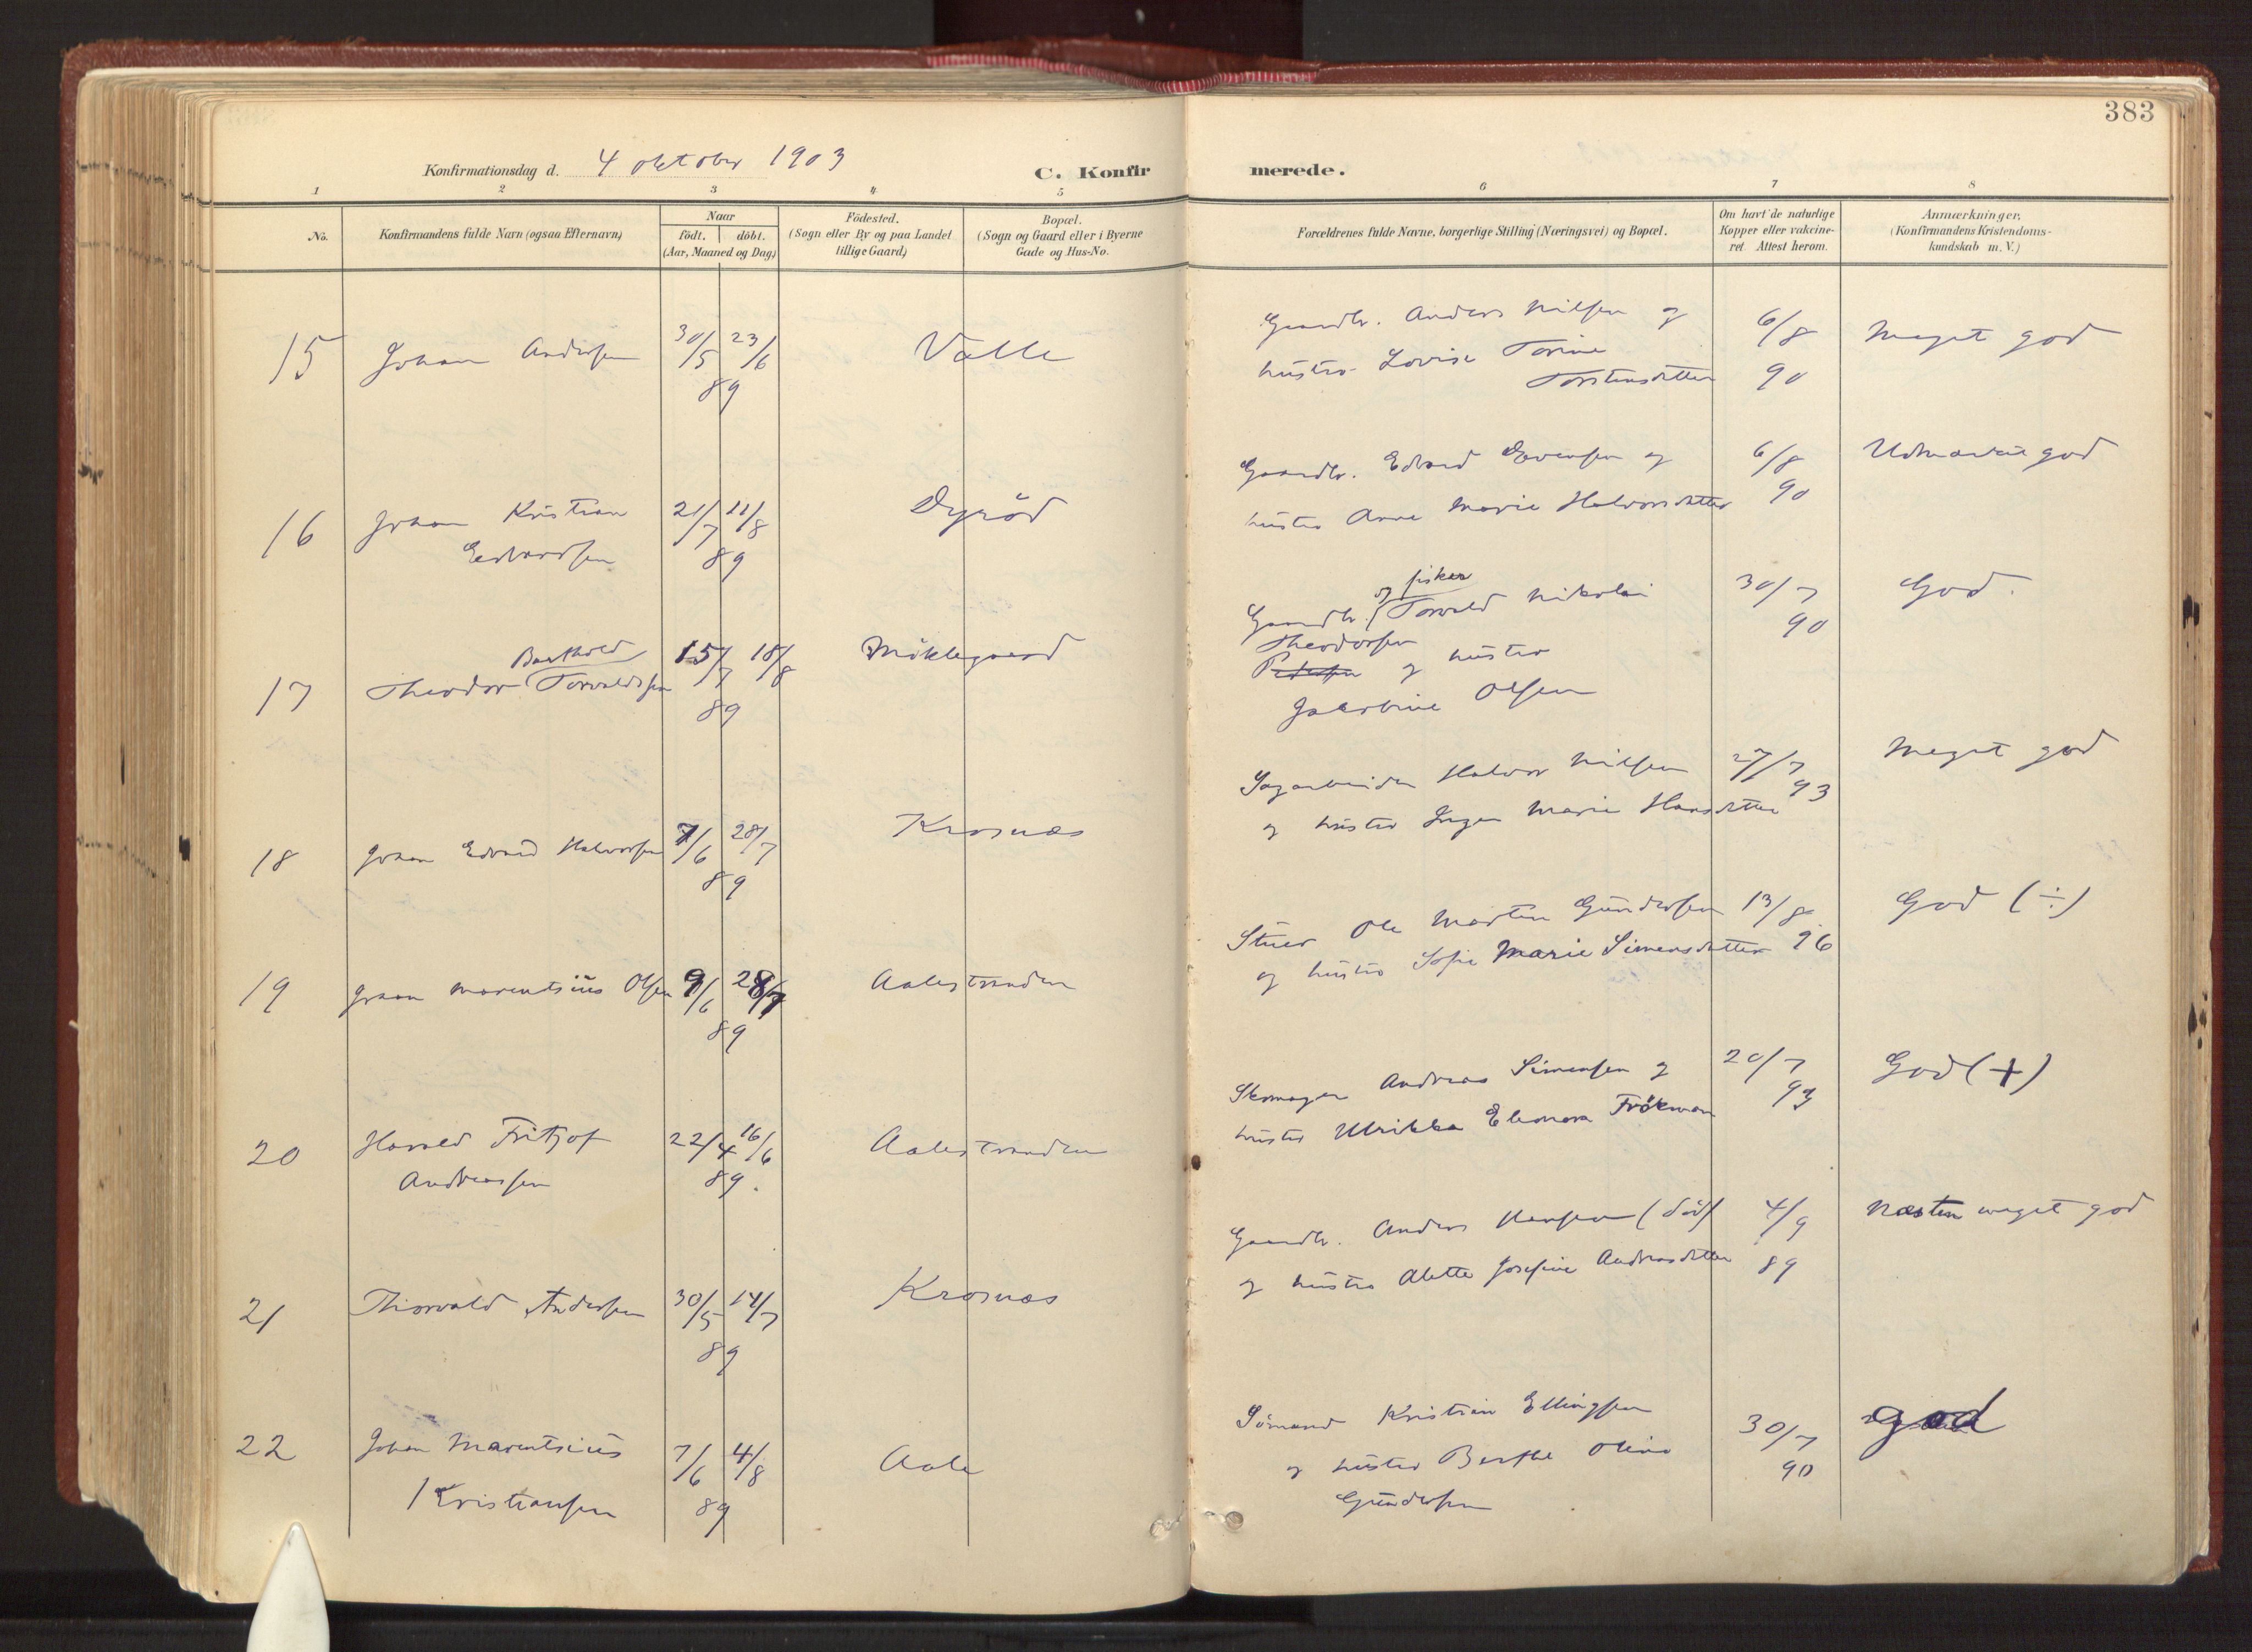 383
Konfirmationsdag d. 4 oktober 1903
C. Konfir merede.
1 2 3 4 5 6 7 8
No.
Konfirmandens fulde Navn (ogsaa Efternavn)
Naar
födt. döbt.
(Aar, Maaned og Dag)
Födested.
(Sogn eller By og paa Landet
tillige Gaard)
Bopæl.
(Sogn og Gaard eller i Byerne
Gade og Hus-No.
Forældrenes fulde Navne, borgerlige Stilling (Næringsvei) og Bopæl.
Om havt de naturlige
Kopper eller vakcine-
ret. Attest herom.
Anmærkninger,
(Konfirmandens Kristendoms-
kundskab m. V.)
15 Johan Andersen 30/5 23/6 Valle
89
Gaardbr. Anders Nilsen og 6/8 Meget god
hustru Lovise Torine
Torstensdatter 90
16 Johan Kristian 21/7 11/8 Dyröd
Edvardsen 89
Gaardbr. Edvard Evensen og 6/8 Udmærket god
hustru Anne Marie Halvorsdatter 90
Barthold
17 Theodor Torvaldsen 15/7 18/8 Möklegaard
89
og fisker
Gaardbr. Torvald Nikolai 30/7 God.
Theodorsen 90
Pedersen og hustru
Jakobine Olsen
18 Johan Edvard Halvorsen 7/6 28/7 Krosnæs
89
Sagarbeider Halvor Nilsen 27/7 Meget god
og hustru Inger Marie Hansdatter 93
19 Johan Marentsius Olsen 9/6 28/7 Aalestranden
89
Stuer Ole Martin Gundersen 13/8 God (÷)
og hustru Sofie Marie Simensdatter 96
20 Harald Fritjof 22/4 16/6 Aalestranden
Andreassen 89.
Skomager Andreas Simensen og 20/7 God (+)
hustru Ulrikka Eleonora Frökman 93
21 Thorvald Andersen 30/5 14/7 Krosnæs
89
Gaardbr. Anders Hansen (död) 4/9 Næsten meget god
og hustru Alette Josefine Andreasdatter 89
22 Johan Marentsius 7/6 4/8 Aale
Kristiansen 89
Sömand Kristian Ellingsen 30/7 god
og hustru Berthe Oline 90
Gundersen